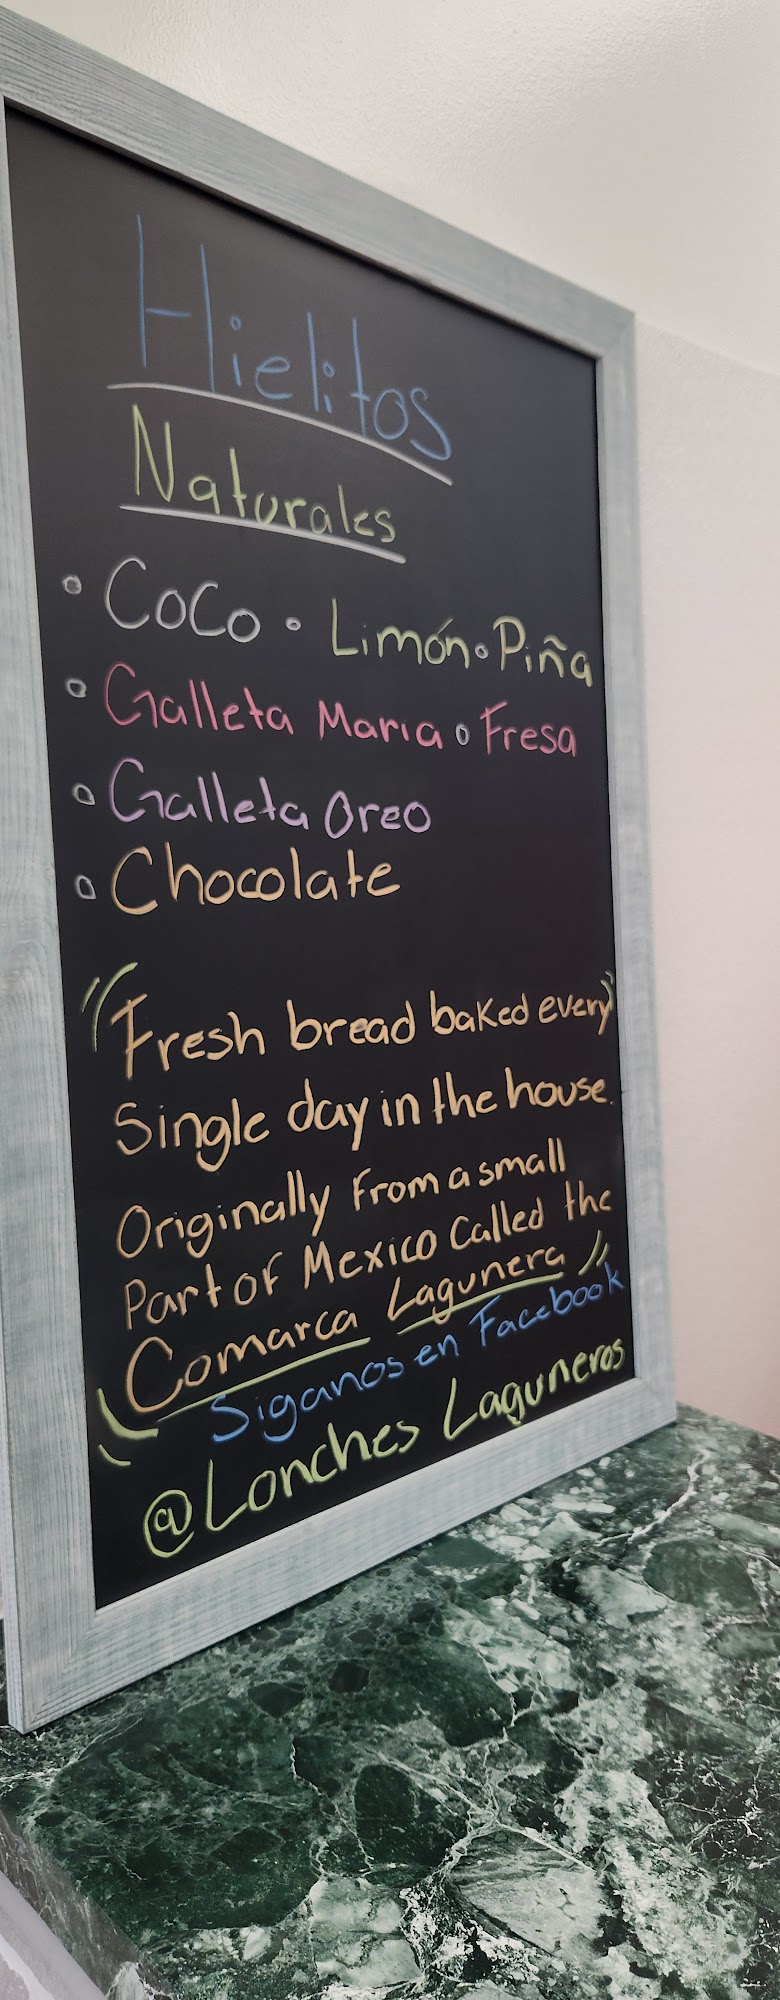 Hielitos
Naturales
• Coco • Limón • Piña
• Galleta Maria • Fresa
• Galleta Oreo
• Chocolate
"Fresh bread baked every"
Single day in the house.
Originally From a small
Part of Mexico Called the
Comarca Lagunera"
Siganos en Facebook
@Lonches Laguneros